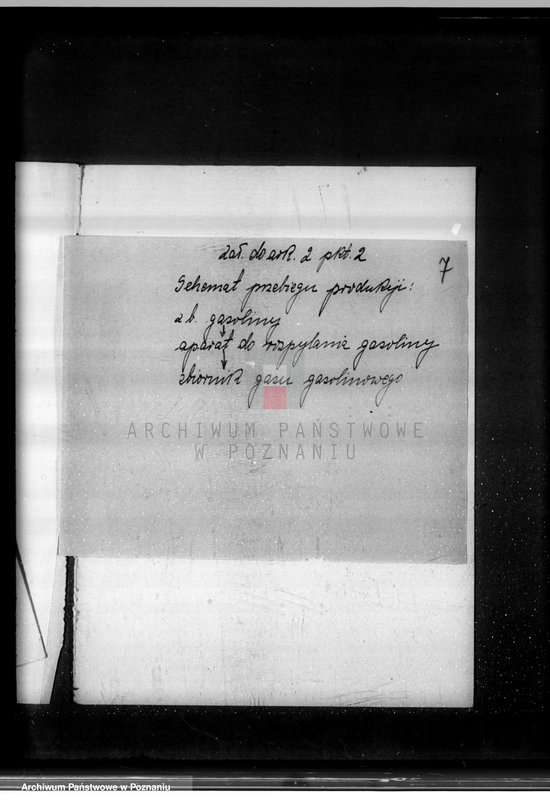 zał. do ark. 2 pkt. 2
7
Schemat przebiegu produkcji:
zb. gasoliny
aparat do rozpylania gasoliny
zbiornik gazu gasolinowego
ARCHIWUM PAŃSTWOWE
W POZNANIU
Archiwum Państwowe w Poznaniu